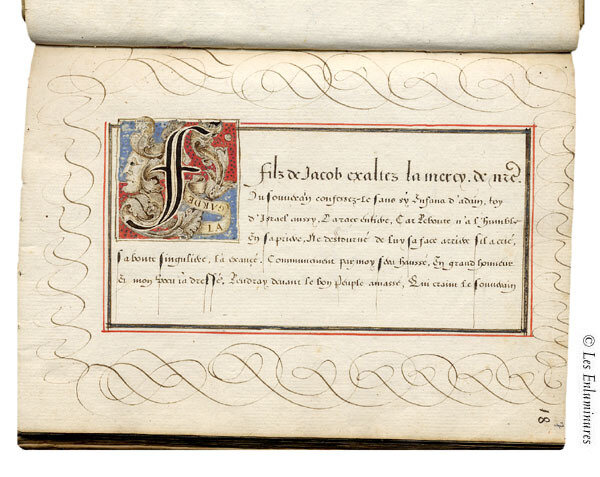 F
AI GARDE
filz de Jacob exaltez la mercy de nre.
Du souverain confessez-le sans sy Enfans d'adam, toy
d'Israel aussy, La race entiere, Car Reboute n'a l'humble
En sa priere, Ne destourné de luy sa face arriere sil a crié,
sa bonté singuliere, la exaucé. Communement par moy sera haussé, En grand honneur
Et mon veu ia dressé, Rendray devant le bon peuple amassé, Qui craint le souverain
18
© Les Enluminures